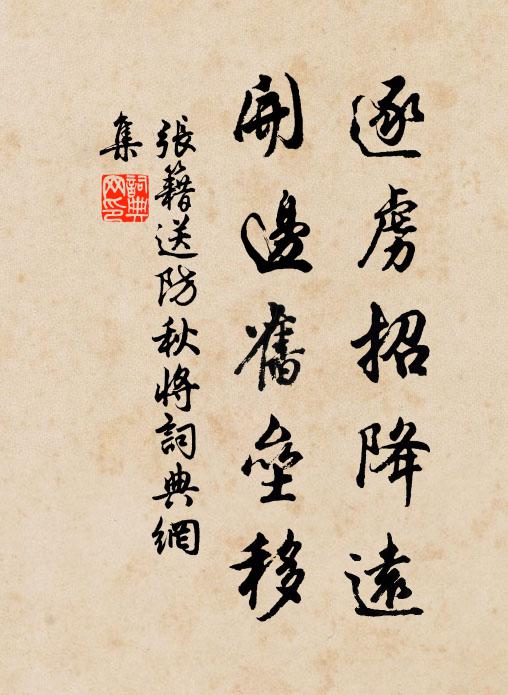 逐虜招降遠
開邊舊壘移
張籍送防秋將詞典網
集
詞典
网印